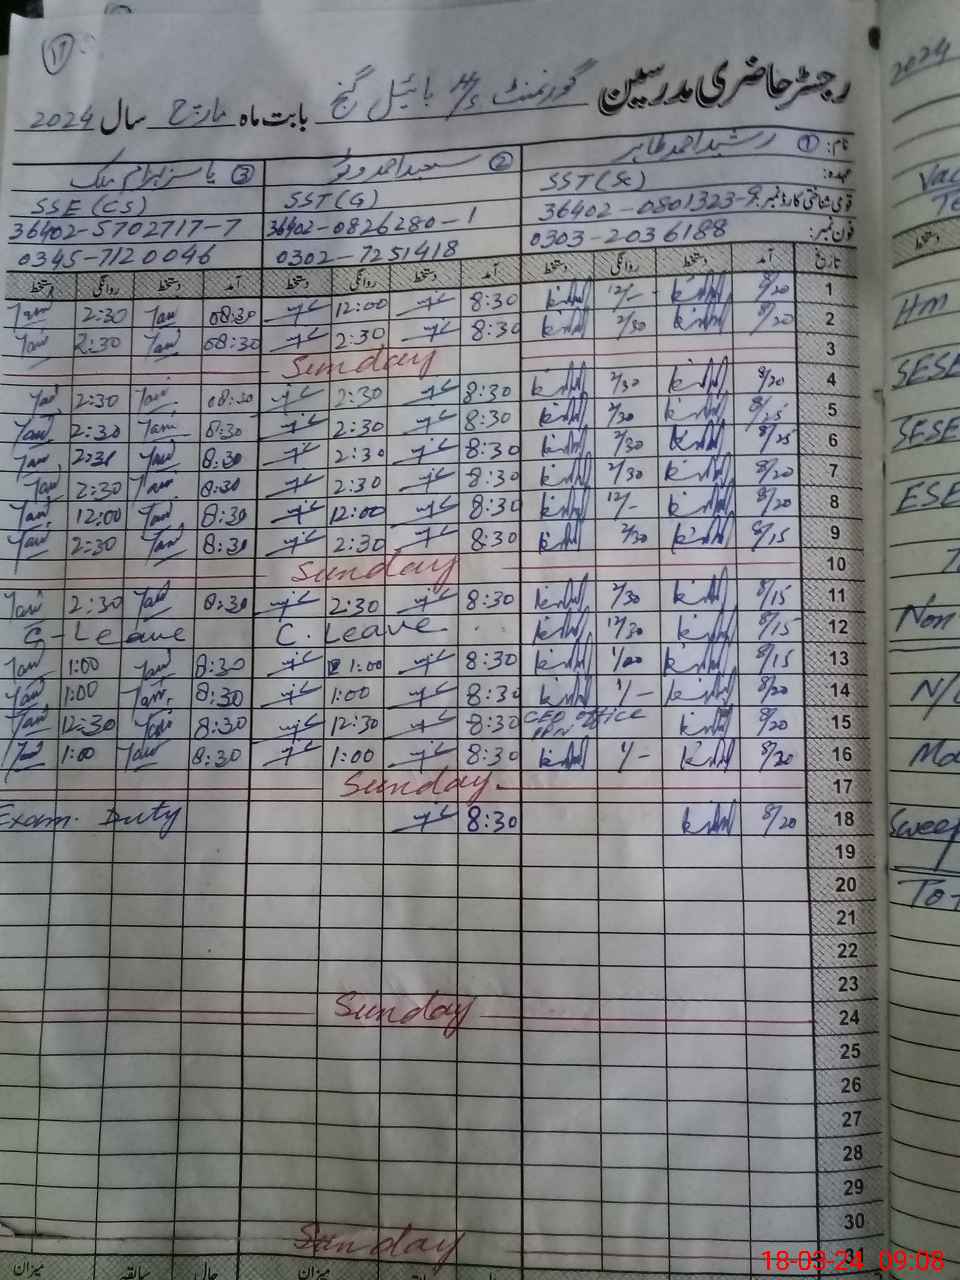 17
رجسٹر حاضری مدرسین گورنمنٹ H/S بائیل گنج بابت ماہ مارچ سال 2024
نام: ① رشید احمد طاہر ② سعید احمد وٹو ③
عہدہ: SST(Sc) SST(G) SSE (CS)
قومی شناختی کارڈ نمبر: 36402-0801323-9 36402-0826280-1 36402-5702717-7
فون نمبر: 0303-2036188 0302-7251418 0345-7120046
تاریخ آمد دستخط روانگی دستخط آمد دستخط روانگی دستخط آمد دستخط روانگی دستخط
1 8/20 12/- 8:30 12:00 08:30 2:30
2 8/20 2/30 8:30 2:30 08:30 2:30
3 Sunday
4 8/20 2/30 8:30 2:30 08:30 2:30
5 8/25 2/30 8:30 2:30 8:30 2:30
6 8/25 2/30 8:30 2:30 8:30 2:31
7 8/20 2/30 8:30 2:30 8:30 2:30
8 8/20 12/- 8:30 12:00 8:30 12:00
9 8/15 2/30 8:30 2:30 8:30 2:30
10 Sunday
11 8/15 2/30 8:30 2:30 8:30 2:30
12 8/15 12/30 C. Leave C-Leave
13 8/15 1/00 8:30 1:00 8:30 1:00
14 8/20 1/- 8:30 1:00 8:30 1:00
15 8/20 CEO office 8:30 12:30 8:30 12:30
16 8/20 1/- 8:30 1:00 8:30 1:00
17 Sunday
18 8/20 8:30 Exam. Duty
19
20
21
22
23
24 Sunday
25
26
27
28
29
30
31 Sunday
میزان سابقہ حالیہ میزان
2024
Hm
SESE
SESE
ESE
Non
N/
Sweep
18-03-24 09:08